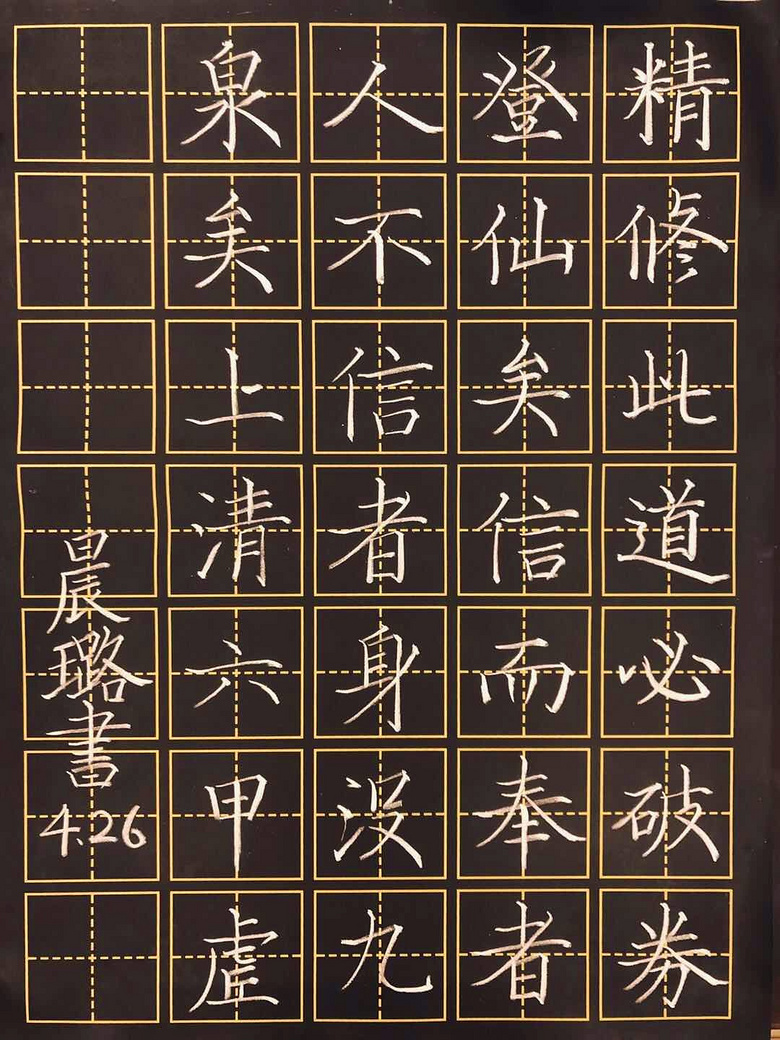 精修此道必破券
登仙矣信而奉者
人不信者身没九
泉矣上清六甲虚
晨璐書
4.26